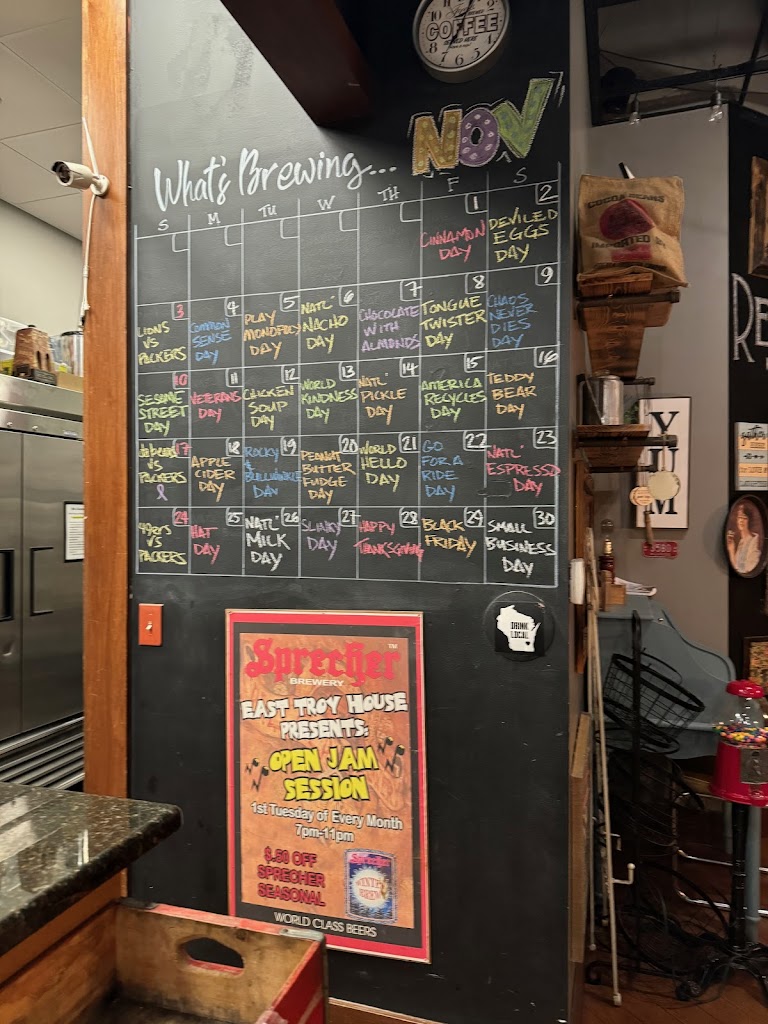 COFFEE
What's Brewing... NOV
S M TU W TH F S
1
CINNAMON
DAY
2
DEVILED
EGGS
DAY
3
LIONS
VS
PACKERS
4
COMMON
SENSE
DAY
5
PLAY
MONOPOLY
DAY
6
NATL'
NACHO
DAY
7
CHOCOLATE
WITH
ALMONDS
8
TONGUE
TWISTER
DAY
9
CHAOS
NEVER
DIES
DAY
10
SESAME
STREET
DAY
11
VETERANS
DAY
12
CHICKEN
SOUP
DAY
13
WORLD
KINDNESS
DAY
14
NATL'
PICKLE
DAY
15
AMERICA
RECYCLES
DAY
16
TEDDY
BEAR
DAY
17
VS
PACKERS
18
APPLE
CIDER
DAY
19
ROCKY
&
BULLWINKLE
DAY
20
PEANUT
BUTTER
FUDGE
DAY
21
WORLD
HELLO
DAY
22
GO
FOR A
RIDE
DAY
23
NATL'
ESPRESSO
DAY
24
49ers
VS
PACKERS
25
HAT
DAY
26
NATL'
MILK
DAY
27
SLINKY
DAY
28
HAPPY
THANKSGIVING
29
BLACK
FRIDAY
30
SMALL
BUSINESS
DAY
COCOA BEANS
IMPORTED
RE
Y
UM
DRINK
LOCAL
Sprecher™
BREWERY
EAST TROY HOUSE
PRESENTS:
OPEN JAM
SESSION
1st Tuesday of Every Month
7pm-11pm
$.50 OFF
SPRECHER
SEASONAL
Sprecher
WORLD CLASS BEERS